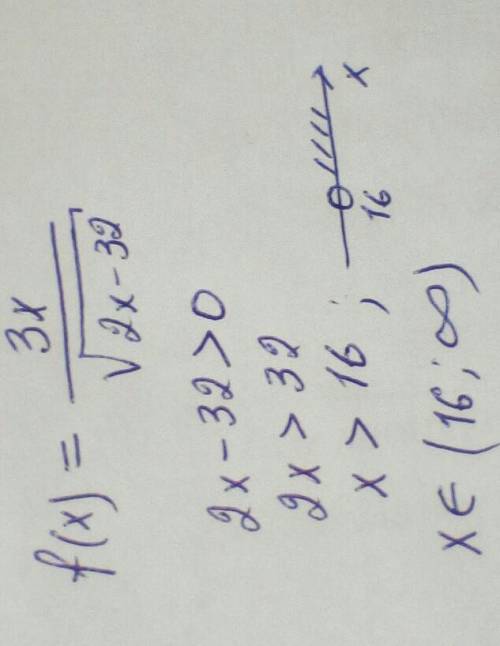 f(x) = 3x / √(2x-32)
2x-32>0
2x>32
x>16; 16 x
x∈(16;∞)